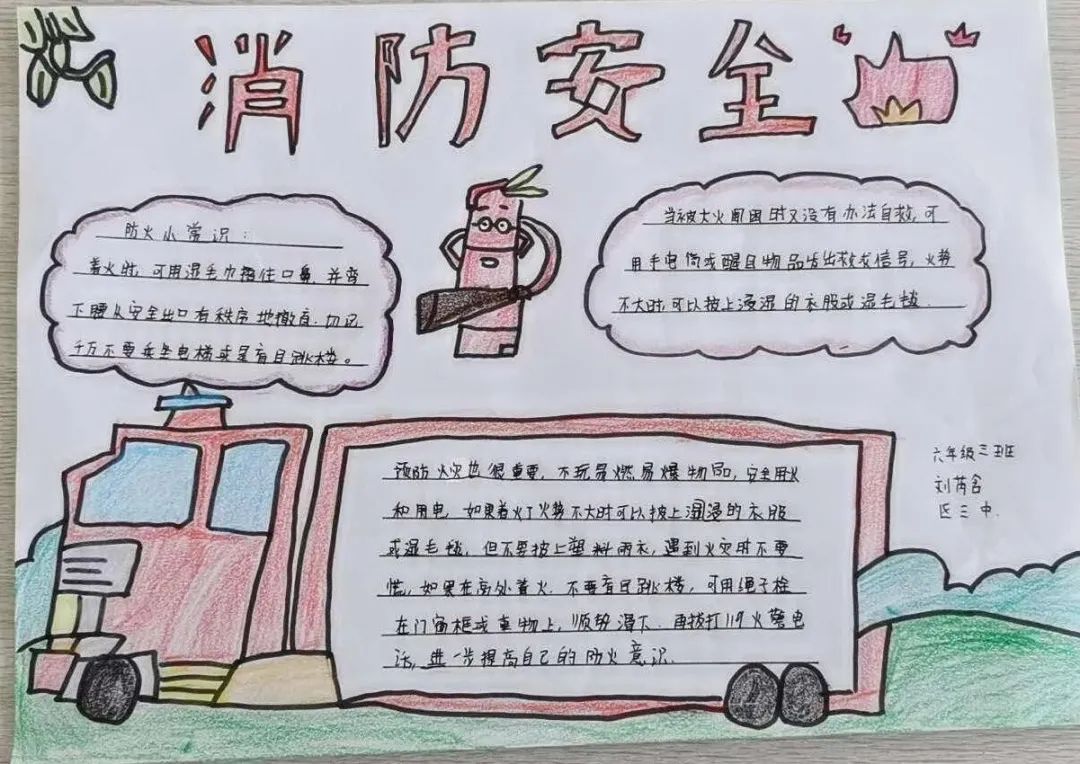 消防安全
防火小常识：
着火时,可用湿毛巾捂住口鼻,并弯
下腰从安全出口有秩序地撤离.切记
千万不要乘坐电梯或是盲目跳楼。
当被大火围困时又没有办法自救,可
用手电筒或醒目物品发出救援信号,火势
不大时,可以披上浸湿的衣服或湿毛毯.
预防火灾也很重要,不玩易燃易爆物品,安全用火
和用电,如果着火了火势不大时可以披上浸的衣服
或湿毛毯,但不要披上塑料雨衣,遇到火灾时不要
慌,如果在高处着火.不要盲目跳楼,可用绳子栓
在门窗框或重物上,顺势滑下.再拨打119火警电
话,进一步提高自己的防火意识.
六年级三班
刘芮含
区三中.